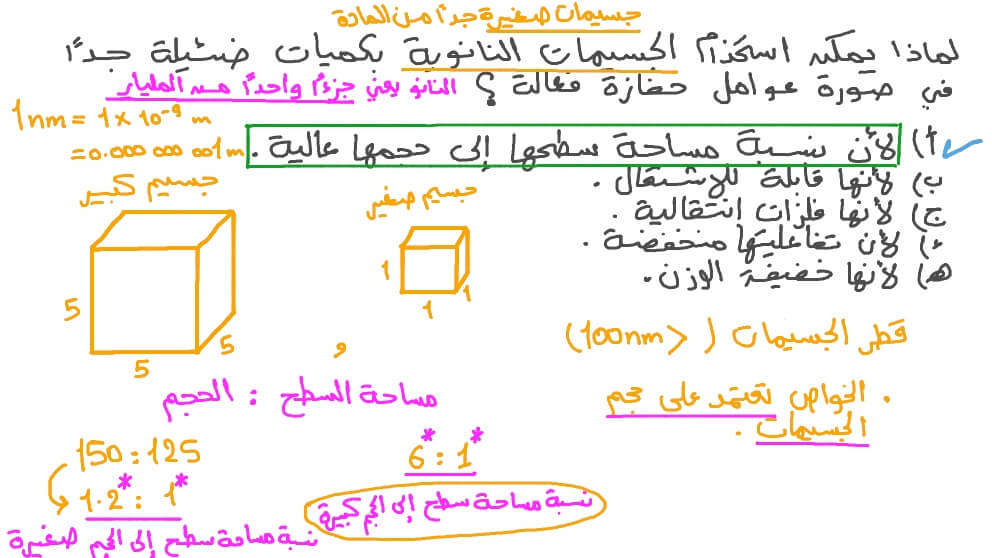 جسيمات صغيرة جدًا من المادة
لماذا يمكن استخدام الجسيمات النانوية بكميات ضئيلة جدًا
في صورة عوامل حفازة فعالة؟ النانو يعني جزءًا واحدًا من المليار
1nm = 1 × 10⁻⁹ m
= 0.000 000 001 m
أ) لأن نسبة مساحة سطحها إلى حجمها عالية.
ب) لأنها قابلة للاشتعال.
ج) لأنها فلزات انتقالية.
د) لأن تفاعليتها منخفضة.
ه) لأنها خفيفة الوزن.
جسيم كبير
جسيم صغير
5
5
5
1
1
1
قطر الجسيمات (< 100nm)
و
مساحة السطح : الحجم
. الخواص تعتمد على حجم
الجسيمات.
150:125
1.2* : 1*
نسبة مساحة سطح إلى الحجم صغيرة
6* : 1*
نسبة مساحة سطح إلى الحجم كبيرة